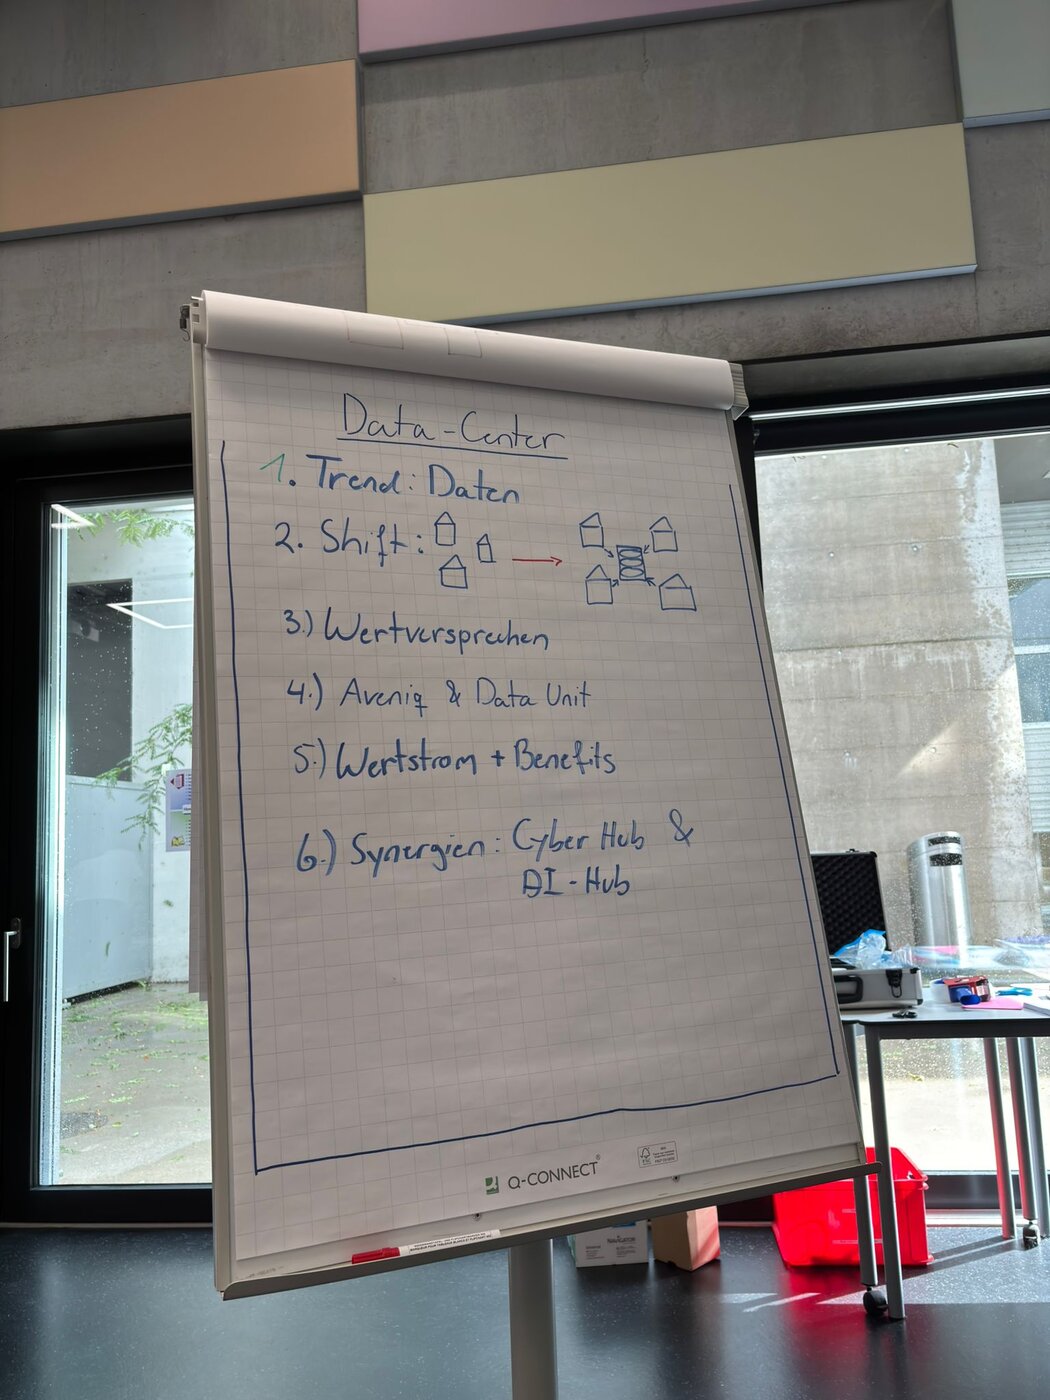 Data-Center
1. Trend: Daten
2. Shift:
3.) Wertversprechen
4.) Aveniq & Data Unit
5.) Wertstrom + Benefits
6.) Synergien: Cyber Hub &
AI-Hub
Q-CONNECT